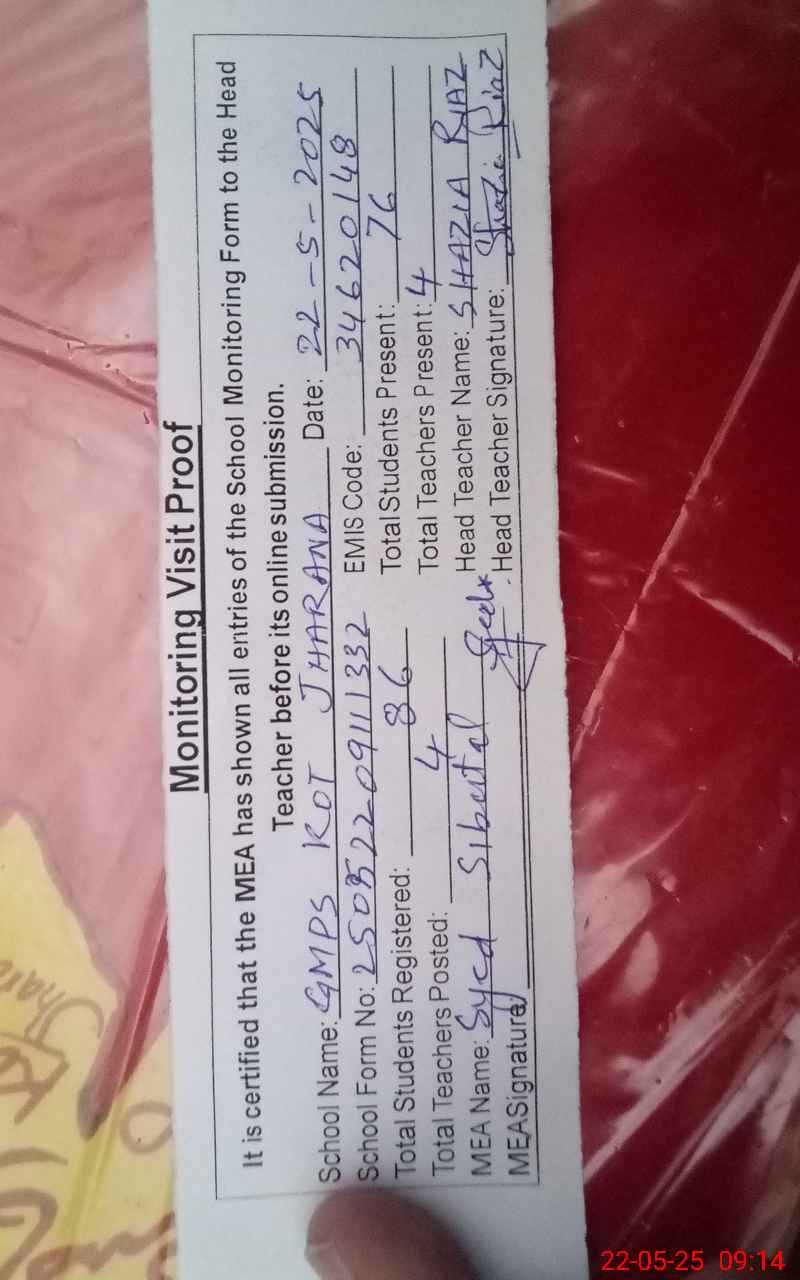 Monitoring Visit Proof
It is certified that the MEA has shown all entries of the School Monitoring Form to the Head
Teacher before its online submission.
School Name: GMPS KOT JHARANA Date: 22-5-2025
School Form No: 25052209111332 EMIS Code: 34620148
Total Students Registered: 86 Total Students Present: 76
Total Teachers Posted: 4 Total Teachers Present: 4
MEA Name: Syed Sibertal Head Teacher Name: SHAZIA RIAZ
MEA Signature: Head Teacher Signature: Shazia Riaz
22-05-25 09:14